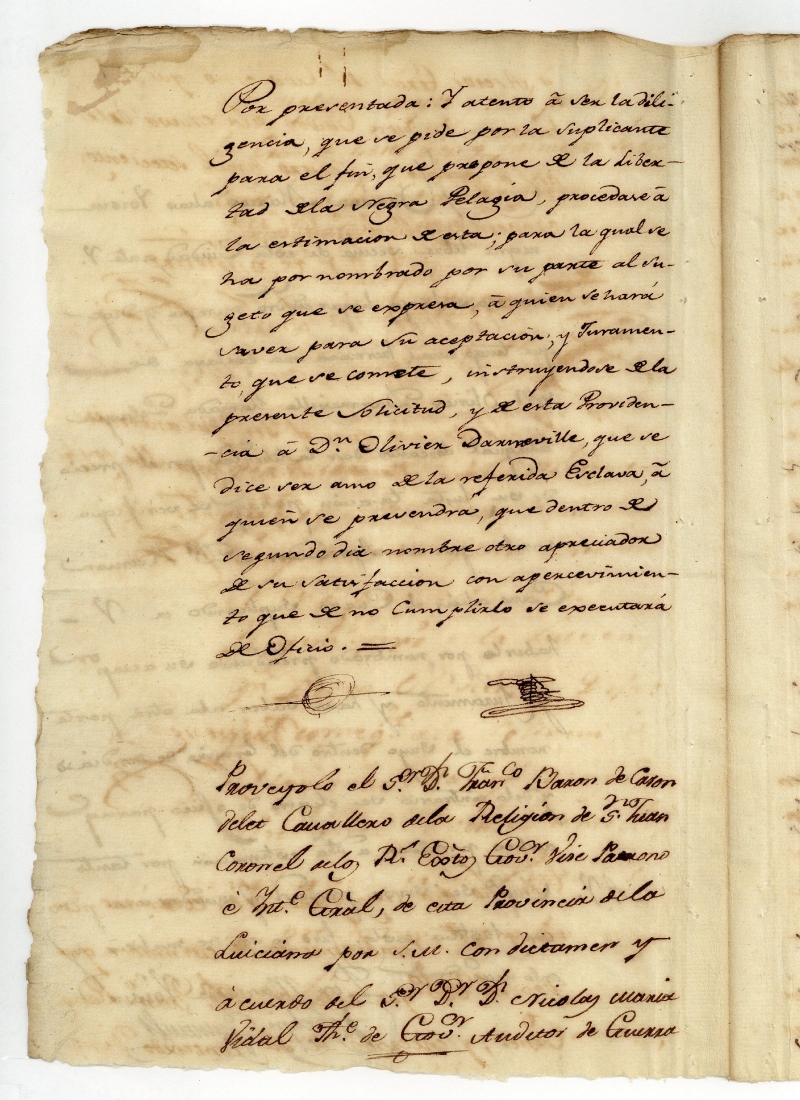 Por presentada: Y atento â ser la dili-
gencia, que se pide por la suplicante
para el fin, que propone de la Liber-
tad de la Negra Pelagia, procedase â
la estimacion de esta; para la qual se
ha por nombrado por su parte al su-
geto que se expresa, â quien se hará
saver para su aceptación, y Juramen-
to, que se comete, instruyendose de la
presente Solicitud, y de esta Providen-
-cia â Dn Olivier Darneville, que se
dice ser amo de la referida Esclava, â
quien se prevendrá, que dentro de
segundo dia nombre otro apreciador
de su satisfaccion con apercevimien-
to que de no Cumplirlo se executará
de Oficio. =
Proveyolo el Sor Dn Franco Baron de Caron
delet Cavallero de la Religión de Sn Juan
Coronel de los Rs Extos Govor Vice Patrono
é Inte Gral, de esta Provincia de la
Luiciana por S.M. con dictamen y
acuerdo del Sor Dr Dn Nicolas Maria
Vidal The de Govor Auditor de Guerra